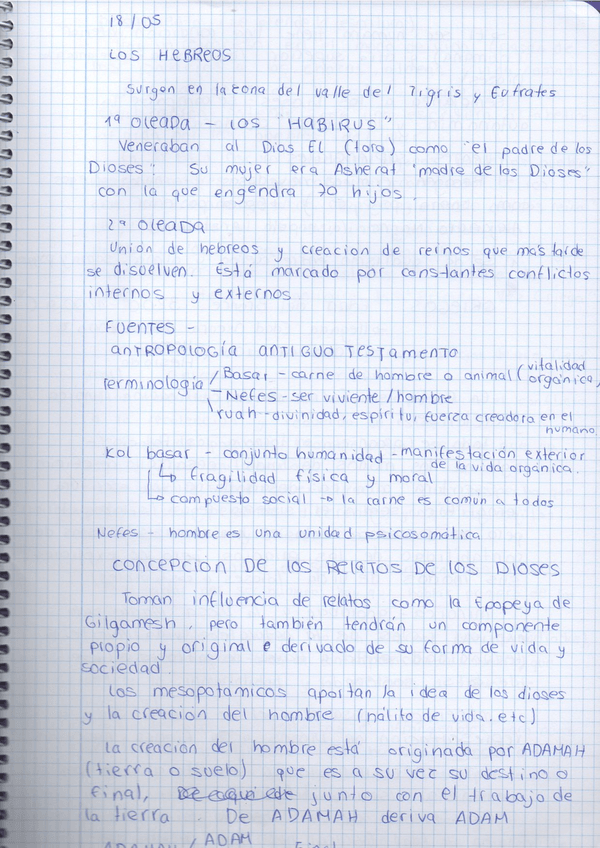 18/05
LOS HEBREOS
Surgen en la zona del valle del Tigris y Eufrates
1ª OLEADA - LOS "HABIRUS"
Veneraban al Dios EL (toro) como "el padre de los
Dioses". Su mujer era Asherat "madre de los Dioses"
con la que engendra 70 hijos.
2ª OLEADA
Unión de hebreos y creación de reinos que más tarde
se disuelven. Está marcado por constantes conflictos
internos y externos
FUENTES -
ANTROPOLOGÍA ANTIGUO TESTAMENTO
terminología / Basar - carne de hombre o animal (vitalidad orgánica)
- Nefes - ser viviente / hombre
\ ruah - divinidad, espíritu, fuerza creadora en el
humano
Kol basar - conjunto humanidad - manifestación exterior
de la vida orgánica.
↳ fragilidad física y moral
↳ compuesto social → la carne es común a todos
Nefes - hombre es una unidad psicosomática
CONCEPCIÓN DE LOS RELATOS DE LOS DIOSES
Toman influencia de relatos como la Epopeya de
Gilgamesh, pero también tendrán un componente
propio y original e derivado de su forma de vida y
sociedad.
Los mesopotamicos aportan la idea de los dioses
y la creación del hombre (hálito de vida, etc)
La creación del hombre está originada por ADAMAH
(tierra o suelo) que es a su vez su destino o
final, junto con el trabajo de
la tierra. De ADAMAH deriva ADAM
ADAMAH / ADAM